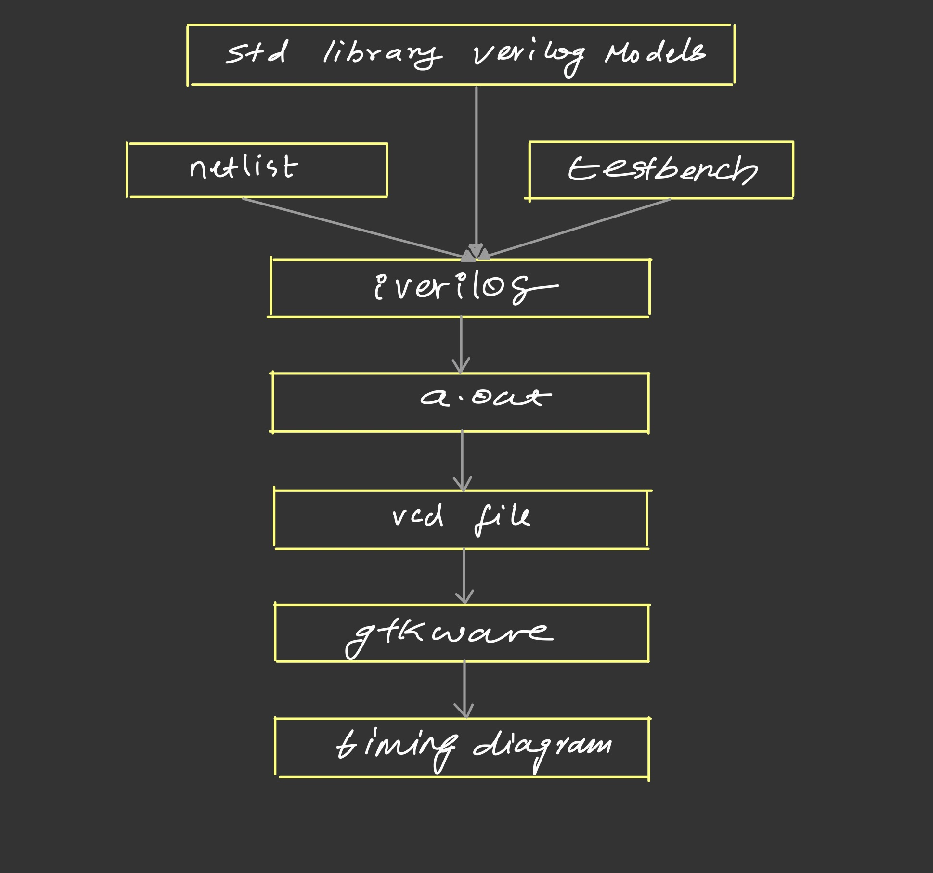 std library verilog Models
netlist
testbench
iverilog
a.out
vcd file
gtkware
timing diagram